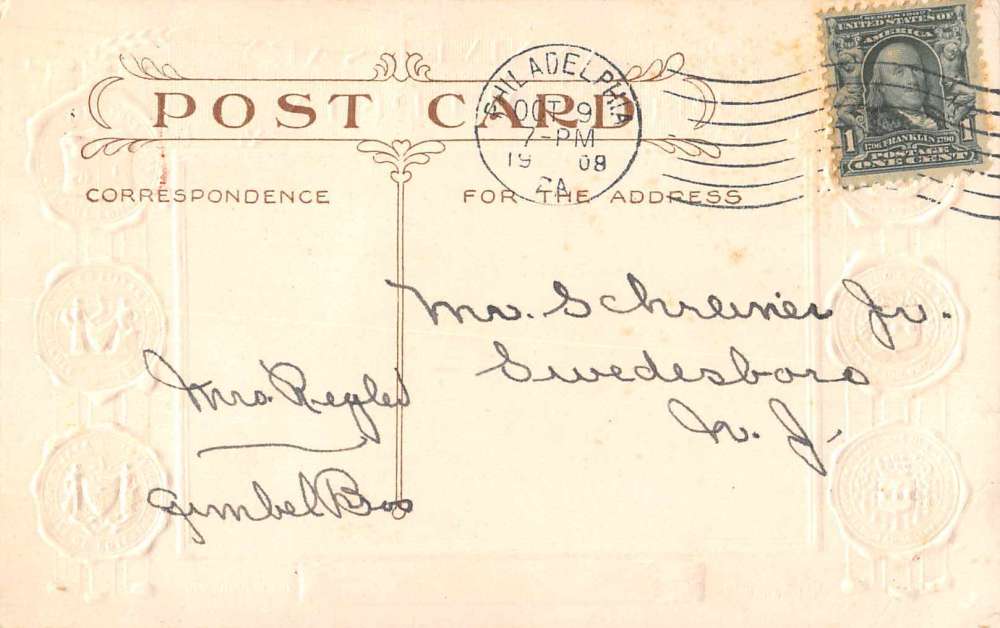 POST CARD
CORRESPONDENCE
FOR THE ADDRESS
PHILADELPHIA
OCT 9
7-PM
1908
PA.
SERIES 1902
UNITED STATES OF
AMERICA
1 1
1706 FRANKLIN 1790
POSTAGE
ONE CENT
Mr. Schreiner Jr.
Swedesboro
N. J.
Mrs.
Gimbel Bros